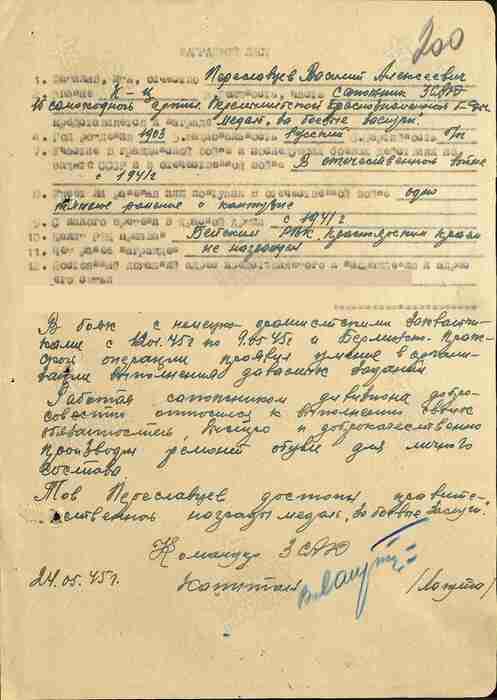 200
НАГРАДНОЙ ЛИСТ
1. Фамилия, имя, отчество Переславцев Василий Алексеевич
2. Звание К-ц должность, часть Сапожник 3САД
16 самоходной артил. Перемышльской Краснознаменной бр.
представляется к награде медаль „за боевые заслуги."
4. Год рождения 1903 5. национальность Русский 6. партийность б/п
7. Участие в гражданской войне и последующих боевых действиях по
защите СССР и в отечественной войне В отечественной войне
с 1941 г
8. Имеет ли ранения или контузии в отечественной войне одно
тяжелое ранение и контузие
9. С какого времени в Красной Армии с 1941 г
10. Каким РВК призван Бейским РВК Красноярским краем
11. Чем ранее награжден не награждался
12. Постоянный домашний адрес представляемого к награждению и адрес
его семьи
В боях с немецко-фашистскими захватчи-
ками с 12.01.45г по 9.05.45г в Берлинско-Праж-
ской операции проявил умение в органи-
зации выполнения даваемых заданий
Работая сапожником дивизиона добро-
совестно относился к выполнению своих
обязанностей, быстро и доброкачественно
производил ремонт обуви для личного
состава
Тов Переславцев достоин правите-
льственной награды медаль „За боевые заслуги".
Командир 3 САД
24.05.45г. Капитан /Лагута/